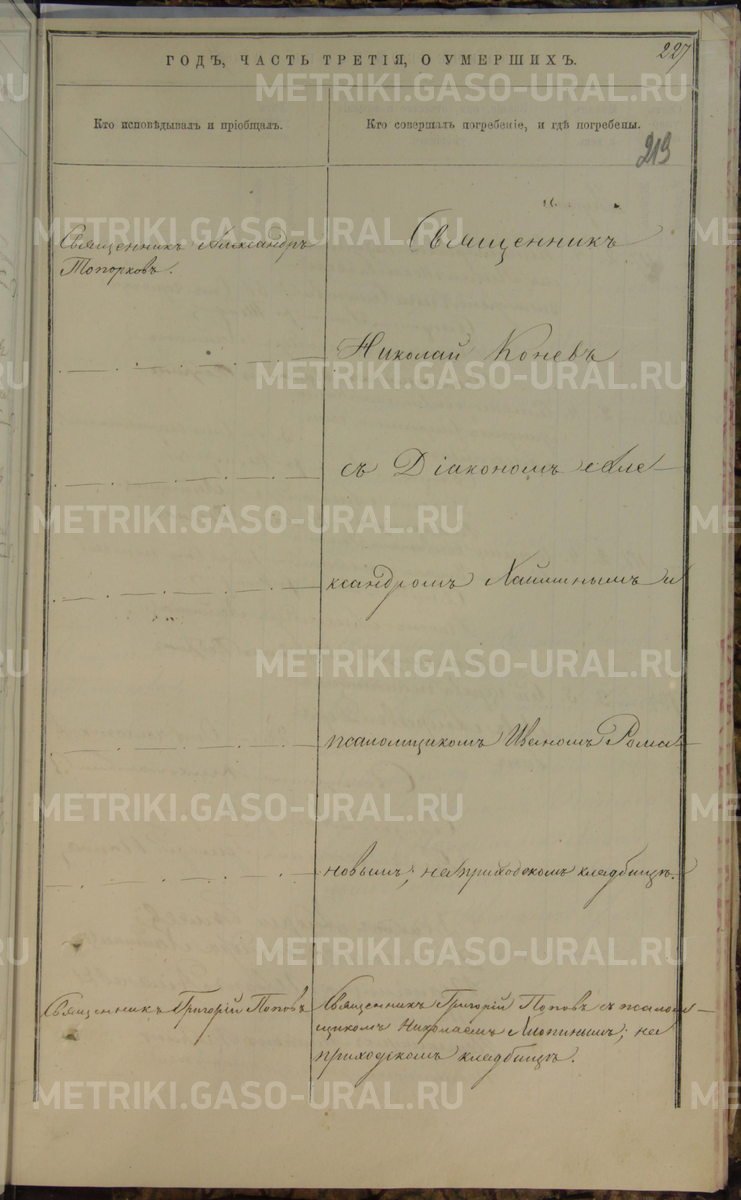 227
ГОДЪ, ЧАСТЬ ТРЕТІЯ, О УМЕРШИХЪ.
Кто исповѣдывалъ и пріобщалъ.
Кто совершалъ погребеніе, и гдѣ погребены.
219
Священникъ Александръ
Топорковъ.
Священникъ
Николай Коневъ
съ Діакономъ Але-
ксандромъ и
псаломщикомъ Иваномъ Рома-
новымъ; на приходскомъ кладбищѣ.
Священникъ Григорій Поповъ
Священникъ Григорій Поповъ съ псалом-
щикомъ Николаемъ; на
приходскомъ кладбищѣ.
METRIKI.GASO-URAL.RU